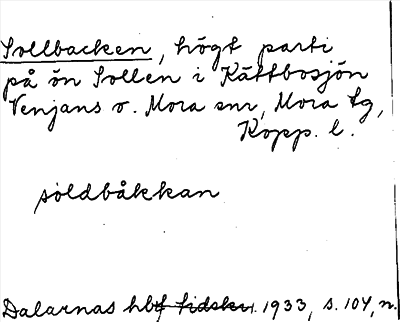 Sollbacken, högt parti
på ön Sollen i Kättbosjön
Venjans o. Mora snr, Mora tg,
Kopp. l.
söldbåkkan
Dalarnas hbf tidskr. 1933, s. 104, n.